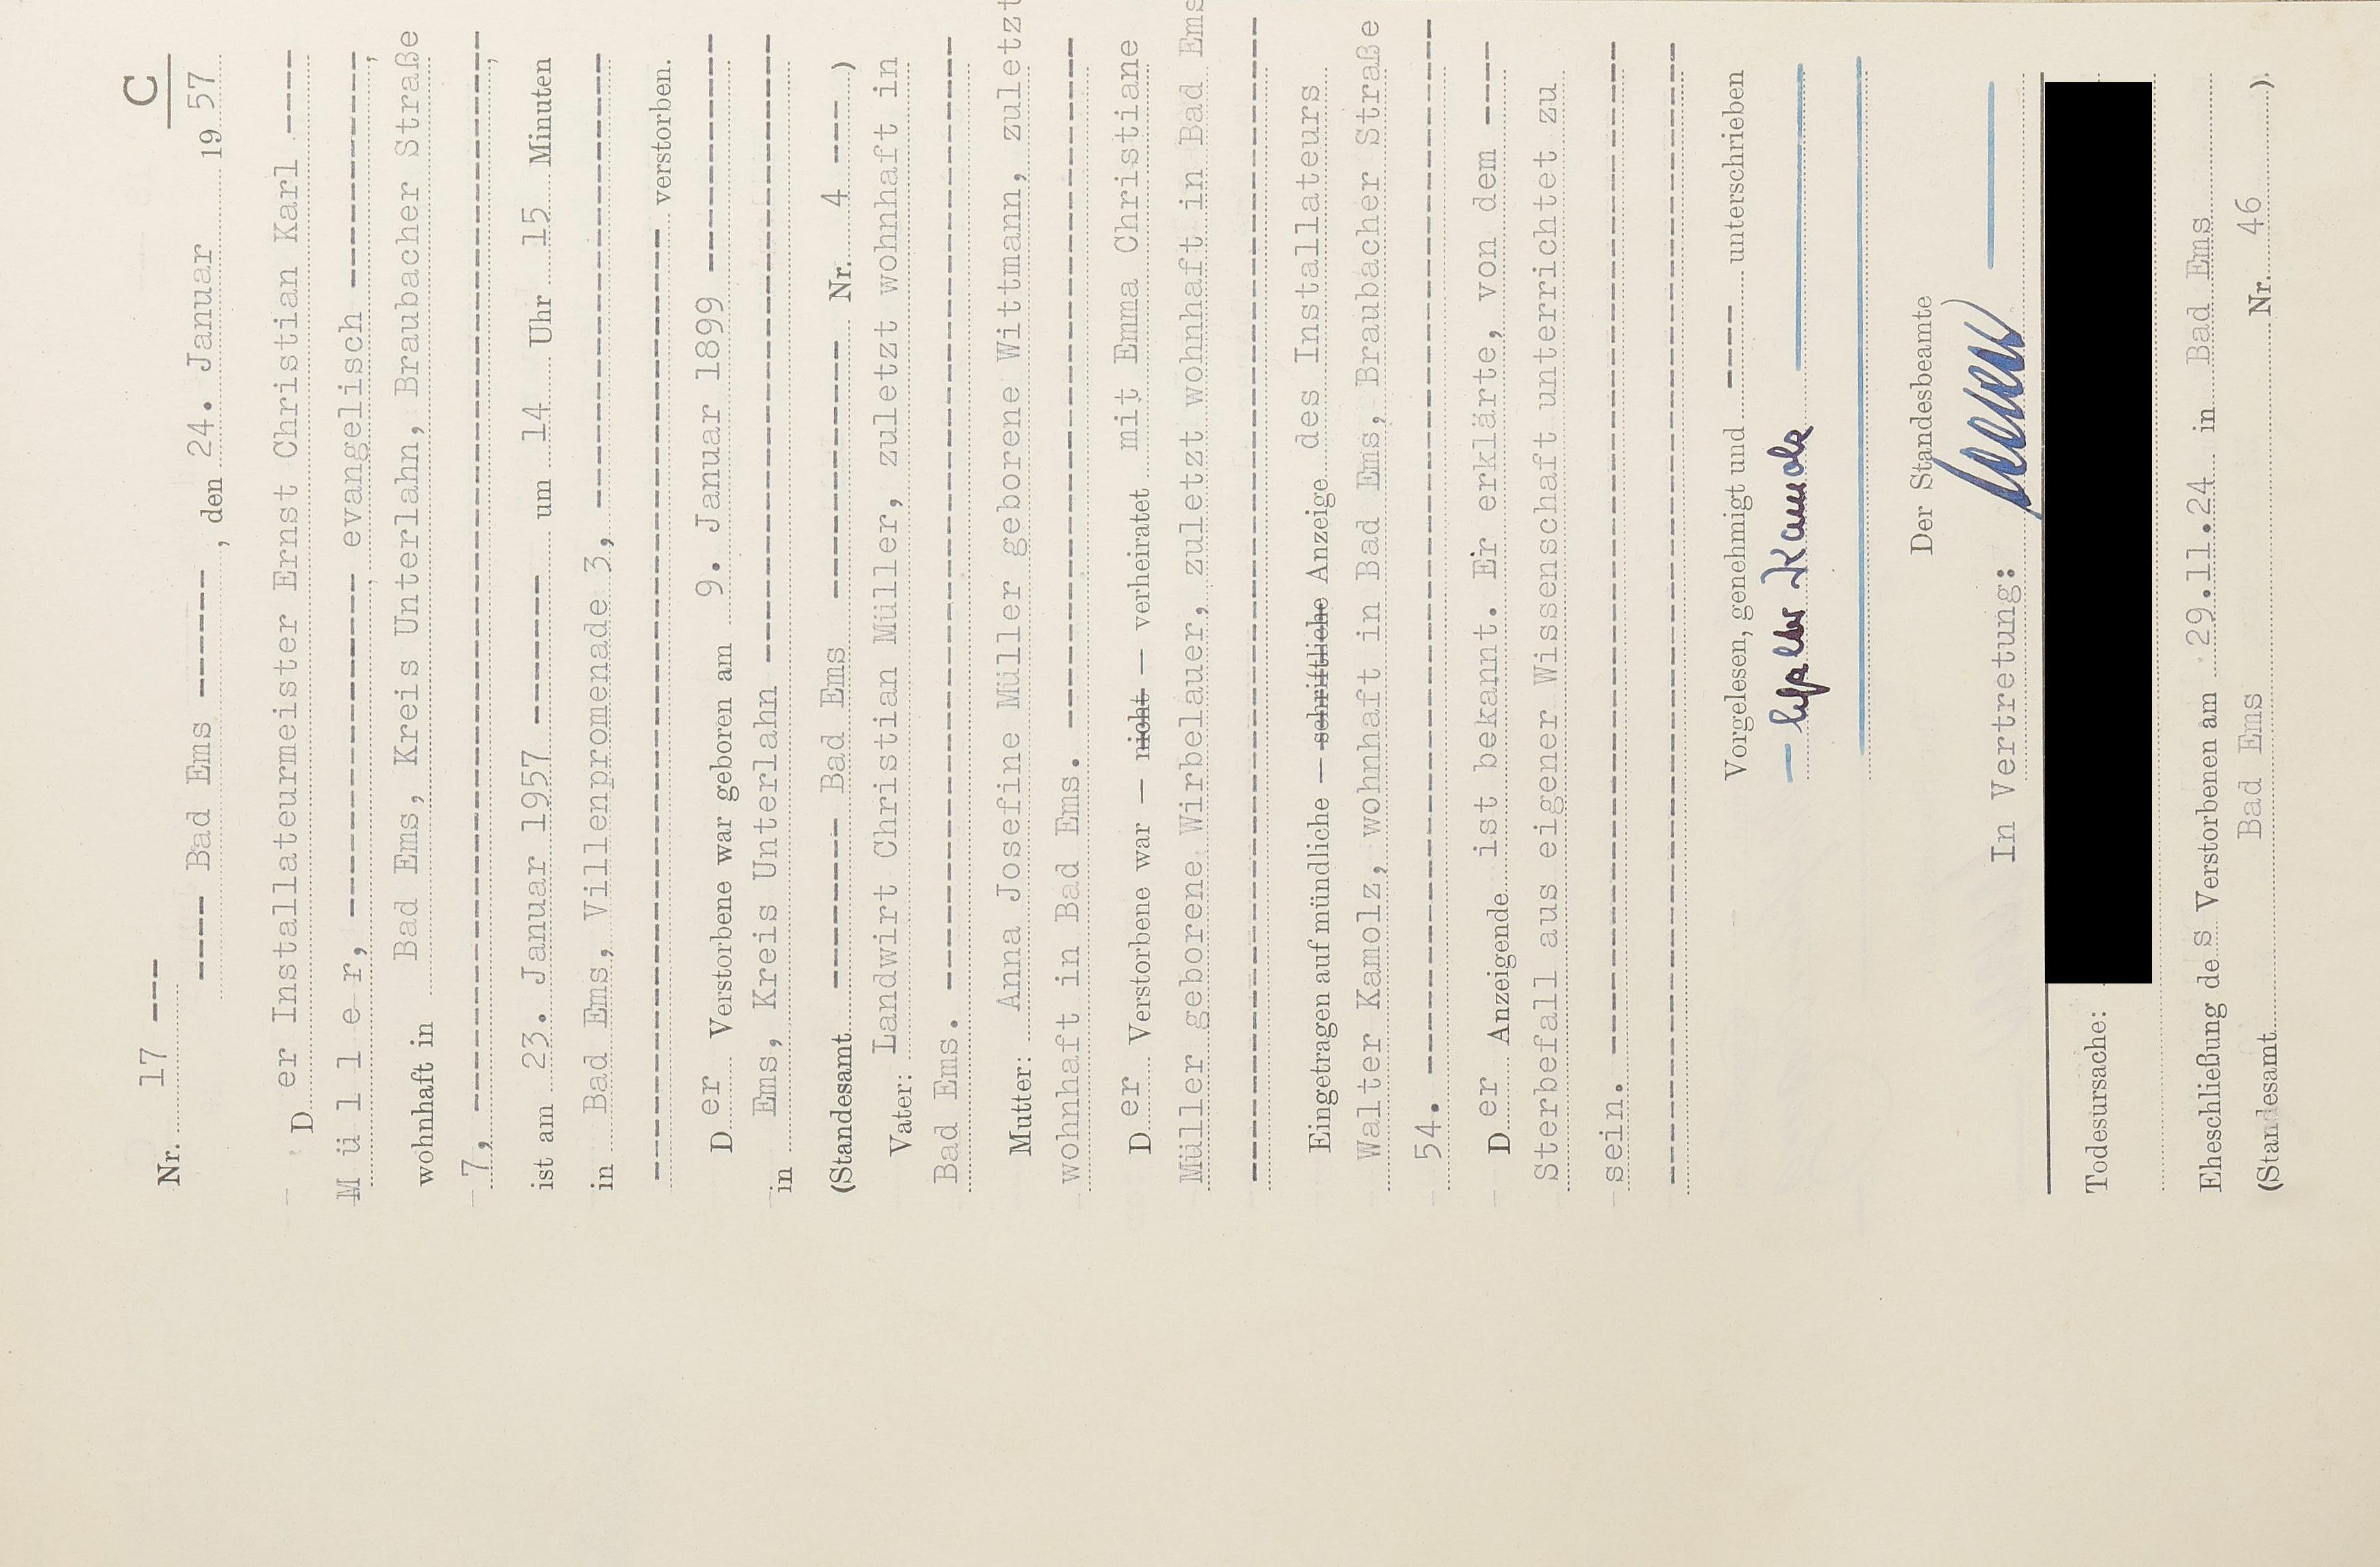 C
Nr. 17 ---
---- Bad Ems ------, den 24. Januar 1957
Der Installateurmeister Ernst Christian Karl ----
M ü l l e r, ---------------- evangelisch -----------,
wohnhaft in Bad Ems, Kreis Unterlahn, Braubacher Straße
7, ----------------------------------------------------,
ist am 23. Januar 1957 ------- um 14 Uhr 15 Minuten
in Bad Ems, Villenpromenade 3, ----------------------
---------------------------------------------- verstorben.
Der Verstorbene war geboren am 9. Januar 1899 -----------
in Ems, Kreis Unterlahn ------------------------------
(Standesamt -------- Bad Ems ------------ Nr. 4 ---- )
Vater: Landwirt Christian Müller, zuletzt wohnhaft in
Bad Ems. ----------------------------------------------
Mutter: Anna Josefine Müller geborene Wittmann, zuletzt
wohnhaft in Bad Ems. ---------------------------------
Der Verstorbene war — nicht — verheiratet mit Emma Christiane
Müller geborene Wirbelauer, zuletzt wohnhaft in Bad Ems
---------------------------------------------------------
Eingetragen auf mündliche — schriftliche Anzeige des Installateurs
Walter Kamolz, wohnhaft in Bad Ems, Braubacher Straße
54. ---------------------------------------------------
Der Anzeigende ist bekannt. Er erklärte, von dem ----
Sterbefall aus eigener Wissenschaft unterrichtet zu
sein. -------------------------------------------------
---------------------------------------------------------
Vorgelesen, genehmigt und ---- unterschrieben
Walter Kamolz
Der Standesbeamte
In Vertretung:
Todesursache:
Eheschließung des Verstorbenen am 29.11.24 in Bad Ems
(Standesamt Bad Ems Nr. 46 ).